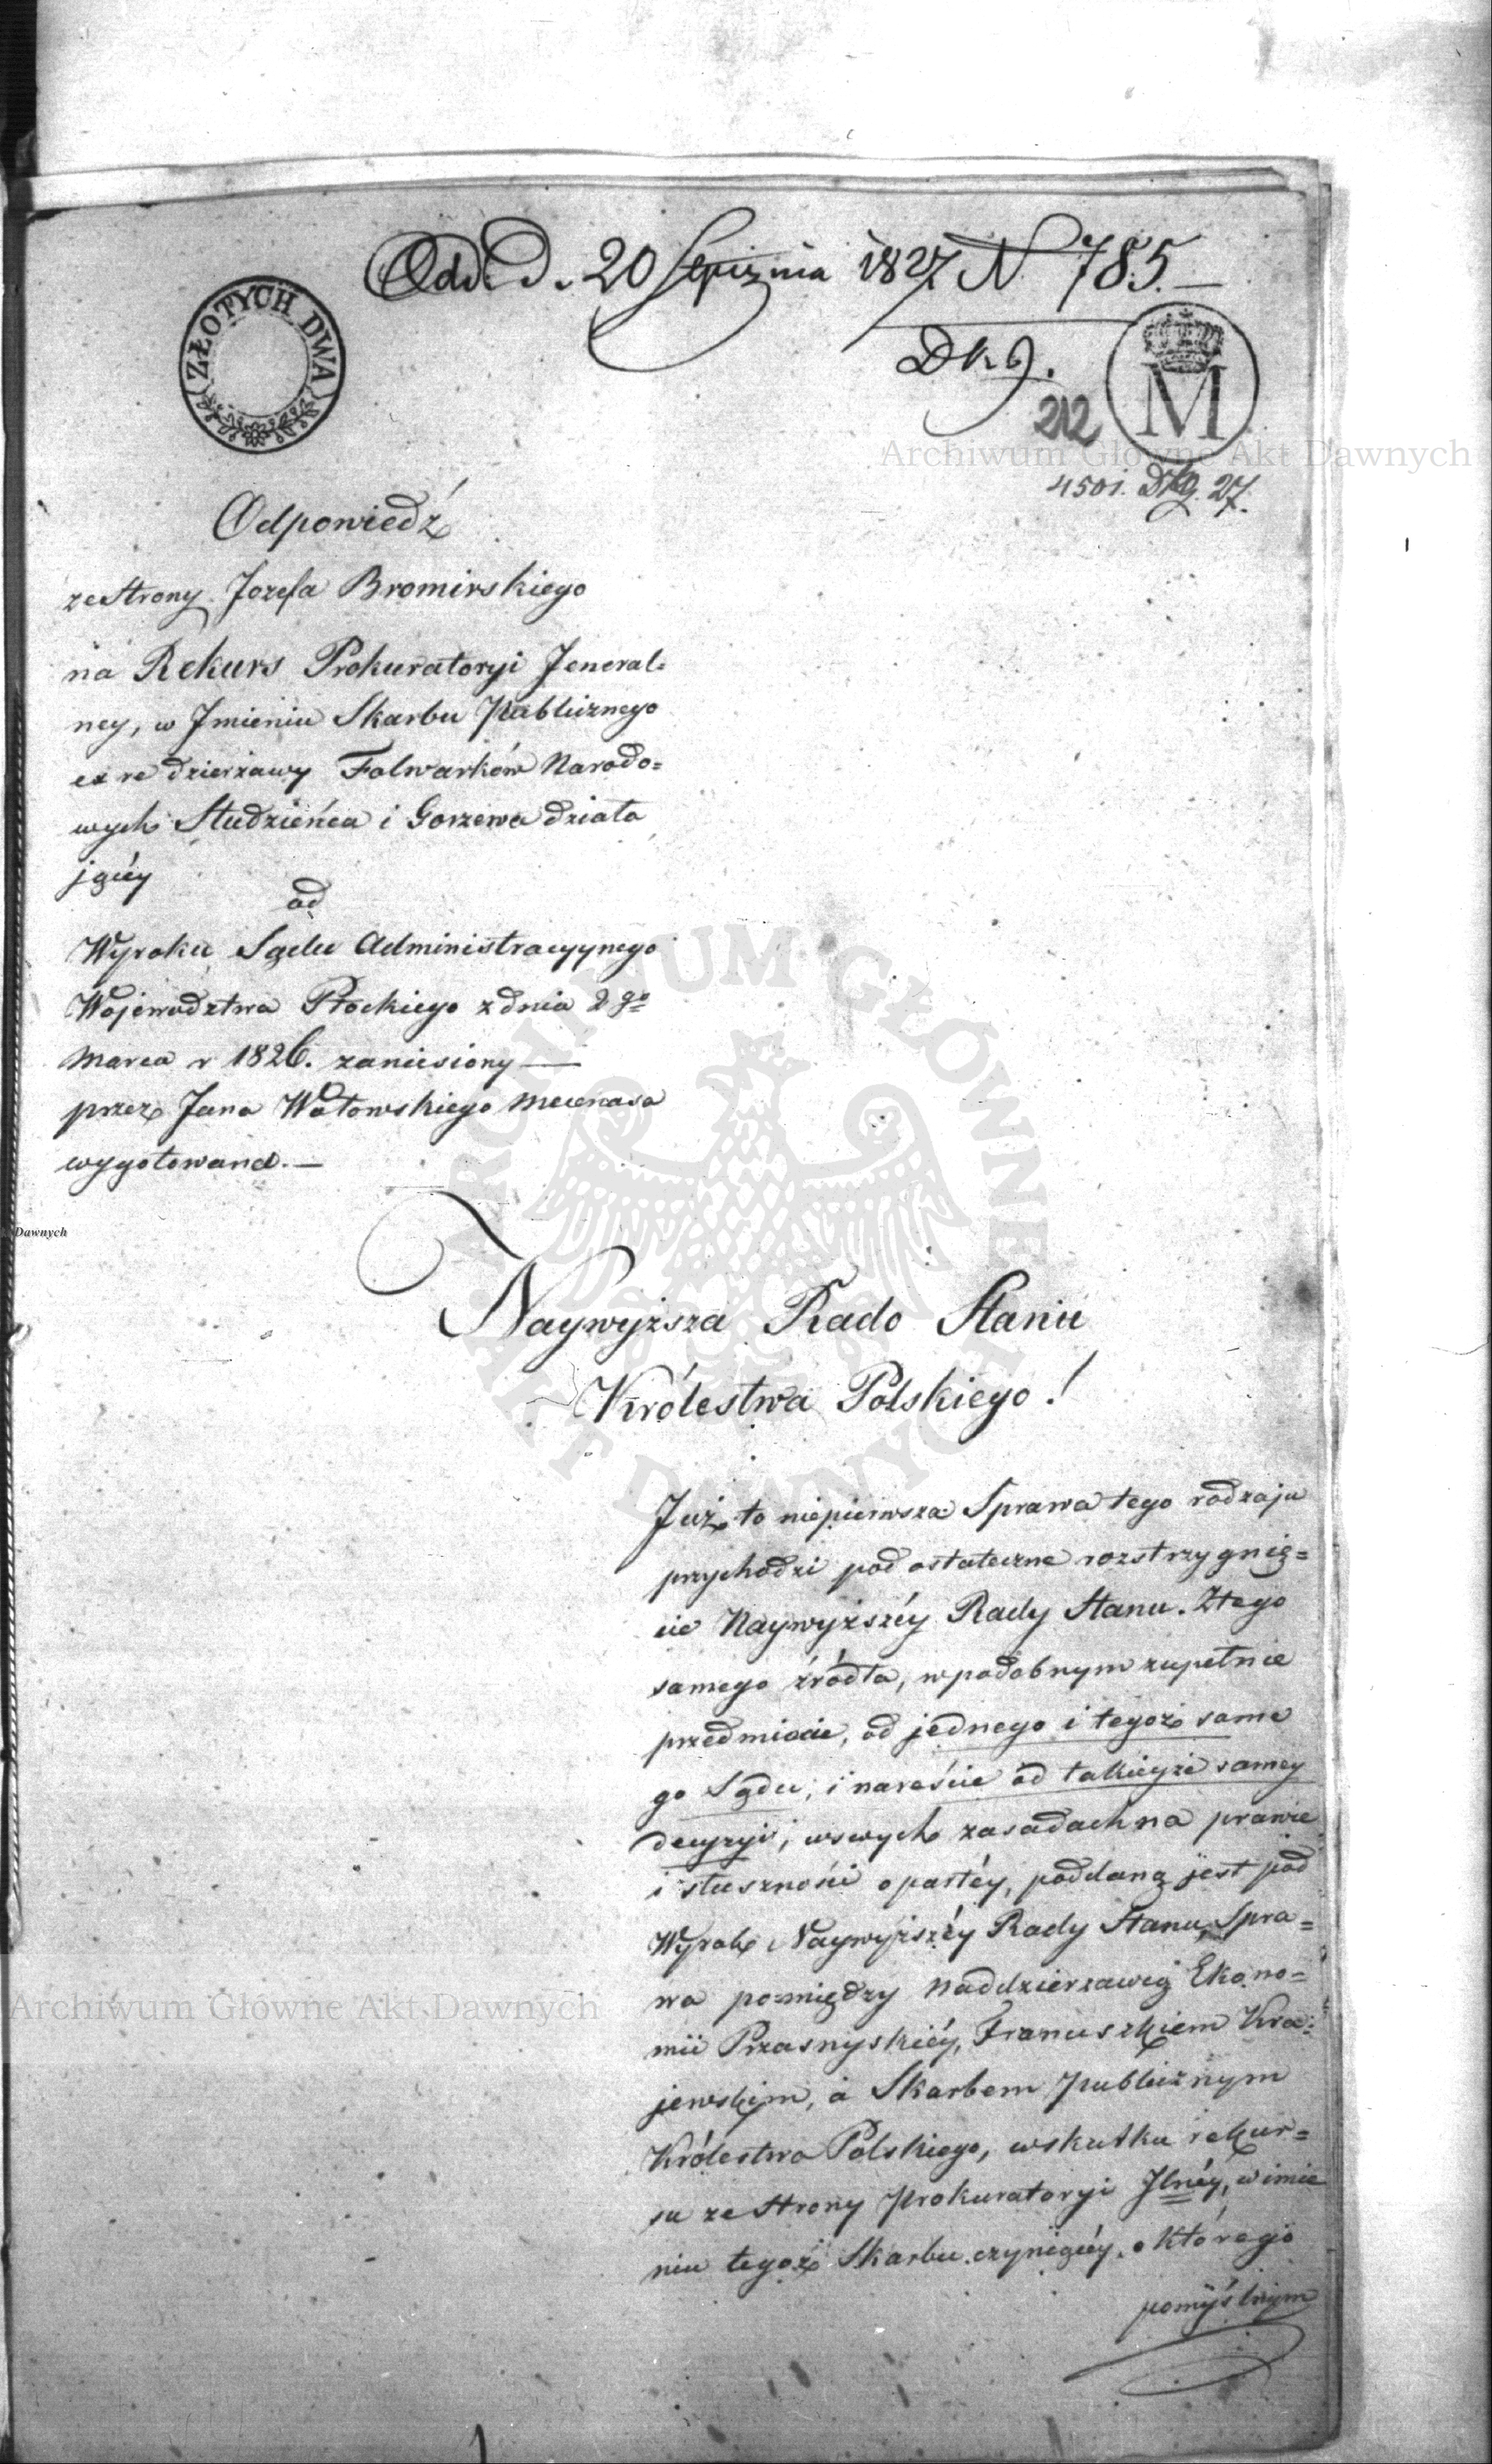 Odd. D. 20 Stycznia 1827 N. 785.—
ZŁOTYCH DWA
Dkg.
M
212
Archiwum Głowne Akt Dawnych
4501. Dkg. 27.
Odpowiedź
ze Strony Jozefa Bromirskiego
na Rekurs Prokuratoryi Jeneral=
ney, w Jmieniu Skarbu Publicznego
ex re dzierżawy Folwarków Narodo=
wych Studzieńca i Gorzewa działa
jącéy
od
Wyroku Sądu Administracyynego
Wojewodztwa Płockiego z dnia 2go
Marca r 1826. zaniesiony —
przez Jana Wołowskiego Mecenasa
wygotowana. —
Dawnych
ARCHIWUM GŁÓWNE AKT DAWNYCH
Naywyższa Rado Stanu
Królestwa Polskiego!
Już to niepierwsza Sprawa tego rodzaju
przychodzi pod ostateczne rozstrzygnię=
cie Naywyższéy Rady Stanu. Ztego
samego źródła, wpodobnym zupełnie
przedmiocie, od jednego i tegoż same
go Sądu, i nareście od takieyże samey
decyzyi, wswych zasadach na prawie
i słuszności opartéy, poddaną jest pod
Wyrok Naywyższéy Rady Stanu, Spra=
wa pomiędzy Naddzierżawcą Ekono=
mii Przasnyskiéy, Franciszkiem Kra=
jewskim, a Skarbem Publicznym
Królestwa Polskiego, wskutku rekur=
su ze Strony Prokuratoryi Jlnéy, w imie
niu tegoż Skarbu czyniącéy, o którego
pomyślnym
Archiwum Głowne Akt Dawnych